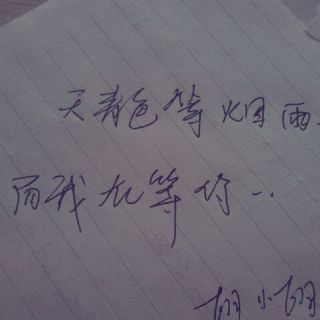 天青色等烟雨.
而我在等你..
胡小胡